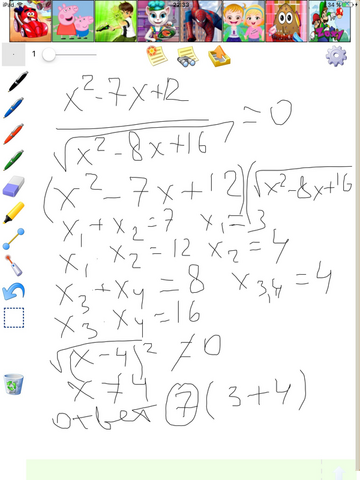 iPad 22:33 34 %
1
x²-7x+12
√x²-8x+16 =0
(x²-7x+12)(√x²-8x+16
x₁+x₂=7 x₁=3
x₁ x₂=12 x₂=4
x₃+x₄=8 x₃,₄=4
x₃ x₄=16
√(x-4)² ≠0
x≠4
ответ 7 (3+4)